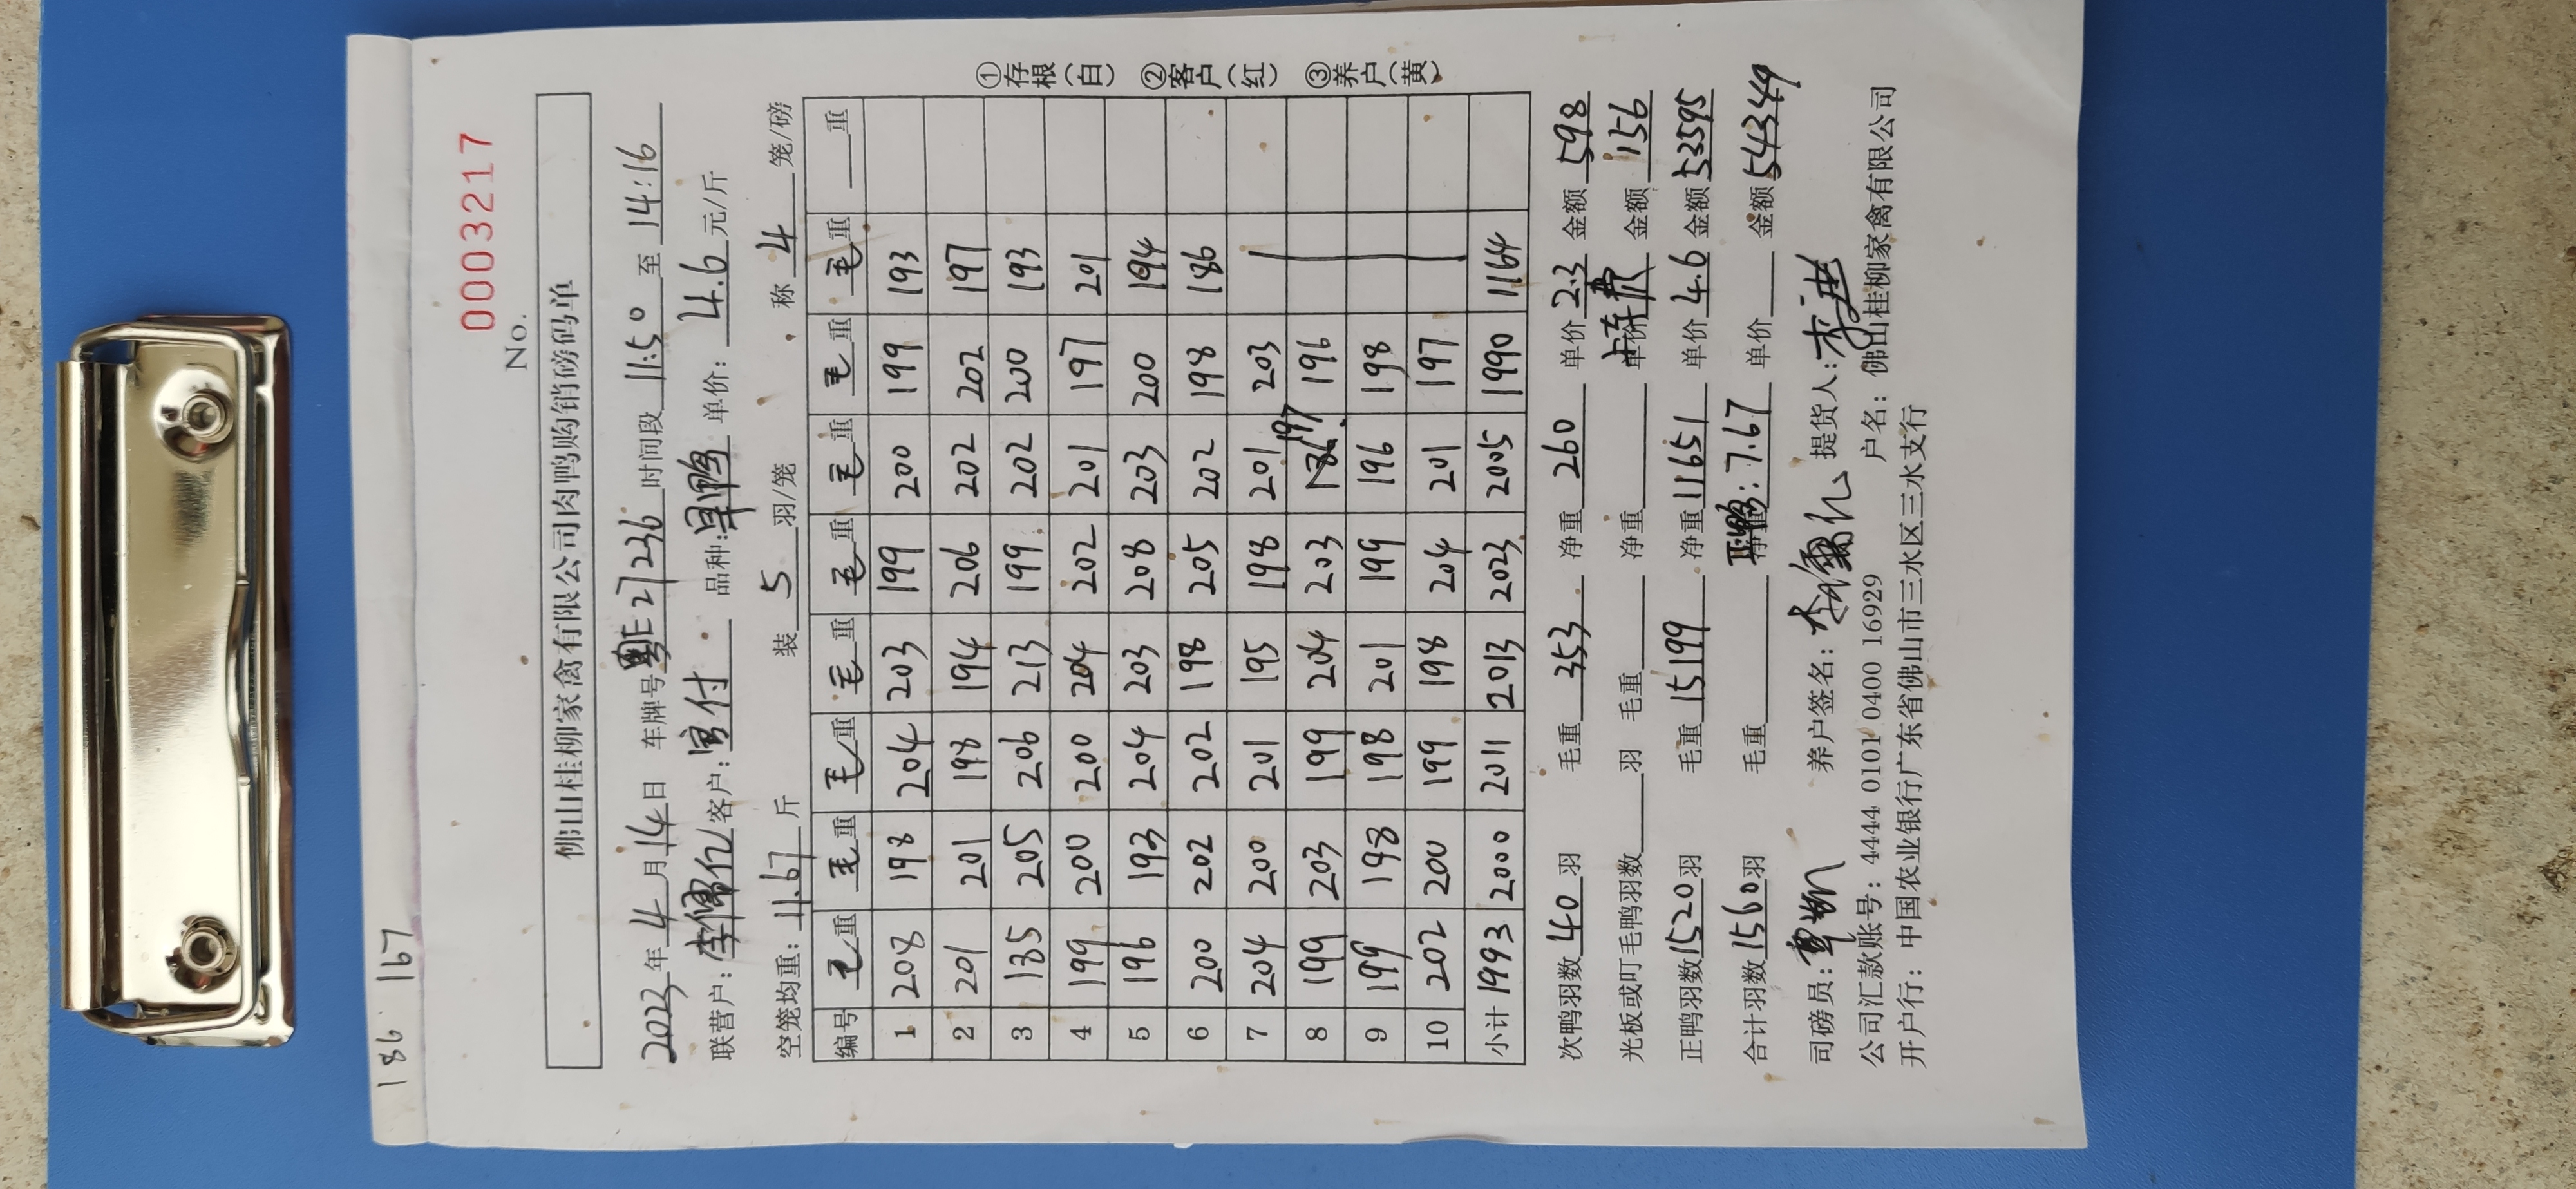 186 167
No. 0003217
佛山桂柳家禽有限公司肉鸭购销磅码单
2023年4月14日 车牌号粤E27236时间段11:50至14:16
联营户: 客户: 付 品种: 鸭 单价: 4.6元/斤
空笼均重: 11.67斤 装5羽/笼 称4笼/磅
编号 毛重 毛重 毛重 毛重 毛重 毛重 毛重 毛重 重
1 208 198 204 203 199 200 199 193
2 201 201 198 194 206 202 202 197
3 185 205 206 213 199 202 200 193
4 199 200 200 204 202 201 197 201
5 196 193 204 203 208 203 200 194
6 200 202 202 198 205 202 198 186
7 204 200 201 195 198 201 203
8 199 203 199 204 203 197 196
9 199 198 198 201 199 196 198
10 202 200 199 198 204 201 197
小计 1993 2000 2011 2013 2023 2005 1990 1164
①存根(白) ②客户(红) ③养户(黄)
次鸭羽数40羽 毛重353 净重260 单价2.3 金额598
光板或叮毛鸭羽数羽 毛重 净重 单价上车费 金额156
正鸭羽数1520羽 毛重15199 净重11651 单价4.6 金额53595
合计羽数1560羽 毛重 净重正鸭:7.67 单价 金额54349
司磅员: 养户签名: 提货人:
公司汇款账号: 4444 0101 0400 16929 户名: 佛山桂柳家禽有限公司
开户行: 中国农业银行广东省佛山市三水区三水支行